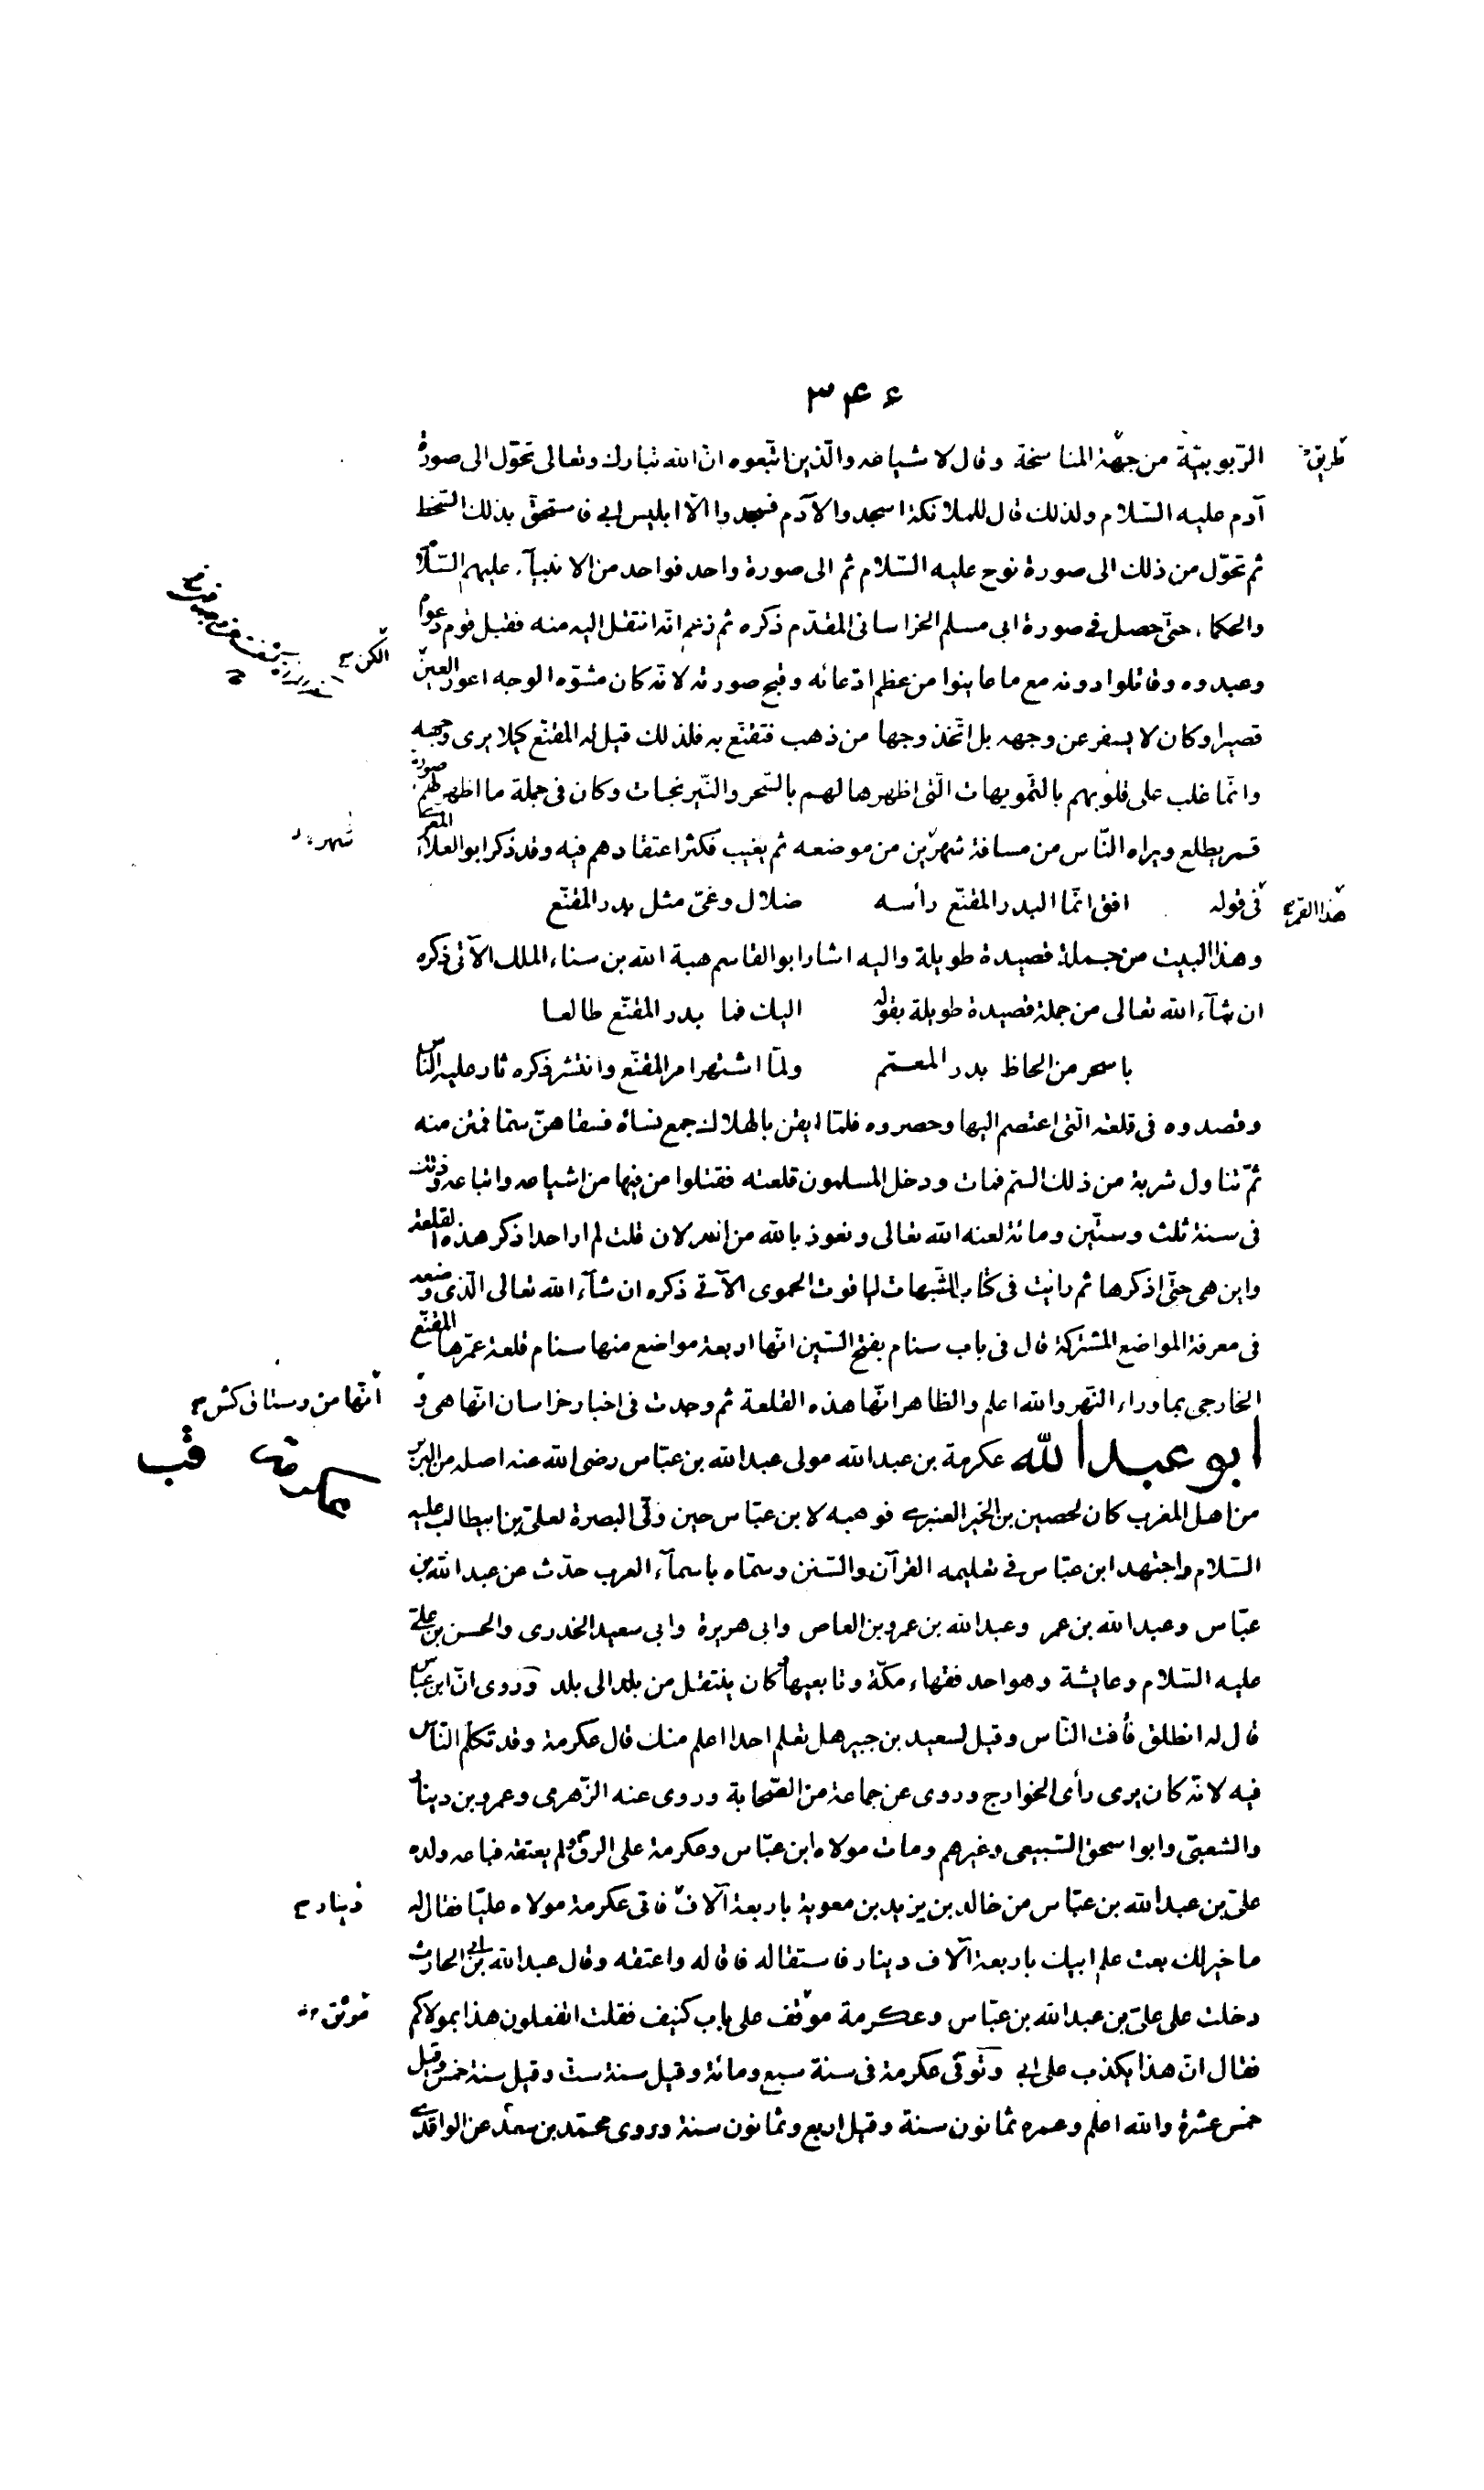 ۳۴۶
الرّبوبيّة من جهة المناسخة وقال لاشياعه والّذين اتّبعوه انّ الله تبارك وتعالى تحوّل الى صورة
طريق
آدم عليه السّلام ولذلك قال للملائكة اسجدوا لآدم فسجدوا الّا ابليس ابى فاستحقّ بذلك السّخط
ثم تحوّل من ذلك الى صورة نوح عليه السّلام ثم الى صورة واحد فواحد من الانبيآء عليهم السّلام
والحكماء حتّى حصل فى صورة ابى مسلم الخراسانى المقدّم ذكره ثم زعم انّه انتقل اليه منه فقبل قوم دعواه
وعبدوه وقاتلوا دونه مع ما عاينوا من عظم ادّعائه وقبح صورته لانّه كان مشوّه الوجه اعور العين
الكن
قصيرا وكان لا يسفر عن وجهه بل اتّخذ وجها من ذهب فتقنّع به فلذلك قيل له المقنّع كيلا يرى وجهه
وانّما غلب على قلوبهم بالتّمويهات الّتى اظهرها لهم بالسّحر والنّيرنجات وكان فى جملة ما اظهر لهم صورة
قمر يطلع ويراه النّاس من مسافة شهرين من موضعه ثم يغيب فكثر اعتقادهم فيه وقد ذكر ابو العلاء المعرى
هذا القمر
فى قوله افق انّما البدر المقنّع رأسه ضلال وغىّ مثل بدر المقنّع
وهذا البيت من جملة قصيدة طويلة واليه اشار ابو القاسم هبة الله بن سناء الملك الآتى ذكره
ان شآء الله تعالى من جملة قصيدة طويلة بقوله اليك فما بدر المقنّع طالعا
باسحر من الحاظ بدر المعمّم ولمّا اشتهر امر المقنّع وانتشر ذكره ثار عليه النّاس
وقصدوه فى قلعته الّتى اعتصم اليها وحصروه فلمّا ايقن بالهلاك جمع نساءه فسقاهنّ سمّا فمتن منه
ثمّ تناول شربة من ذلك السّم فمات ودخل المسلمون قلعته فقتلوا من فيها من اشياعه واتباعه وذلك
فى سنة ثلث وستّين ومائة لعنه الله تعالى ونعوذ بالله من الخذلان قلت لم ار احدا ذكر هذه القلعة
واين هى حتّى اذكرها ثم رأيت فى كتاب الشّبهات لياقوت الحموى الآتى ذكره ان شآء الله تعالى الّذى وضعه
فى معرفة المواضع المشتركة قال فى باب سنام بفتح السّين انّها اربعة مواضع منها سنام قلعة عمّرها المقنّع
الخارجى بما وراء النّهر والله اعلم والظاهر انّها هذه القلعة ثم وجدت فى اخبار خراسان انّها هى و
انّها من رستاق كش
ابو عبد الله عكرمة بن عبد الله مولى عبد الله بن عبّاس رضى الله عنه اصله من البربر
عكرمة
من اهل المغرب كان لحصين بن الخير العنبرى فوهبه لابن عبّاس حين ولّى البصرة لعلىّ بن ابيطالب عليه
السّلام واجتهد ابن عبّاس فى تعليمه القرآن والسّنن وسمّاه باسمآء العرب حدّث عن عبد الله بن
عبّاس وعبد الله بن عمر وعبد الله بن عمرو بن العاص وابى هريرة وابى سعيد الخدرى والحسن بن علىّ
عليه السّلام وعايشة وهو احد فقهاء مكّة وتابعيها كان ينتقل من بلد الى بلد وروى انّ ابن عبّاس
قال له انطلق فأفت النّاس وقيل لسعيد بن جبير هل تعلم احدا اعلم منك قال عكرمة وقد تكلّم النّاس
فيه لانّه كان يرى رأى الخوارج وروى عن جماعة من الصّحابة وروى عنه الزّهرى وعمرو بن دينار
والشعبىّ وابو اسحق السّبيعى وغيرهم ومات مولاه ابن عبّاس وعكرمة على الرقّ ولم يعتقه فباعه ولده
علىّ بن عبد الله بن عبّاس من خالد بن يزيد بن معوية باربعة آلاف فاتى عكرمة مولاه عليّا فقال له
دينار
ما خير لك بعت علم ابيك باربعة آلاف دينار فاستقاله فاقاله واعتقه وقال عبد الله بن ابى الحارث
دخلت على علىّ بن عبد الله بن عبّاس وعكرمة موثّق على باب كنيف فقلت اتفعلون هذا بمولاكم
موثق
فقال انّ هذا يكذب على ابى وتوفّى عكرمة فى سنة سبع ومائة وقيل سنة ستّ وقيل سنة خمس وقيل
خمس عشرة والله اعلم وعمره ثمانون سنة وقيل اربع وثمانون سنة وروى محمّد بن سعد عن الواقدى